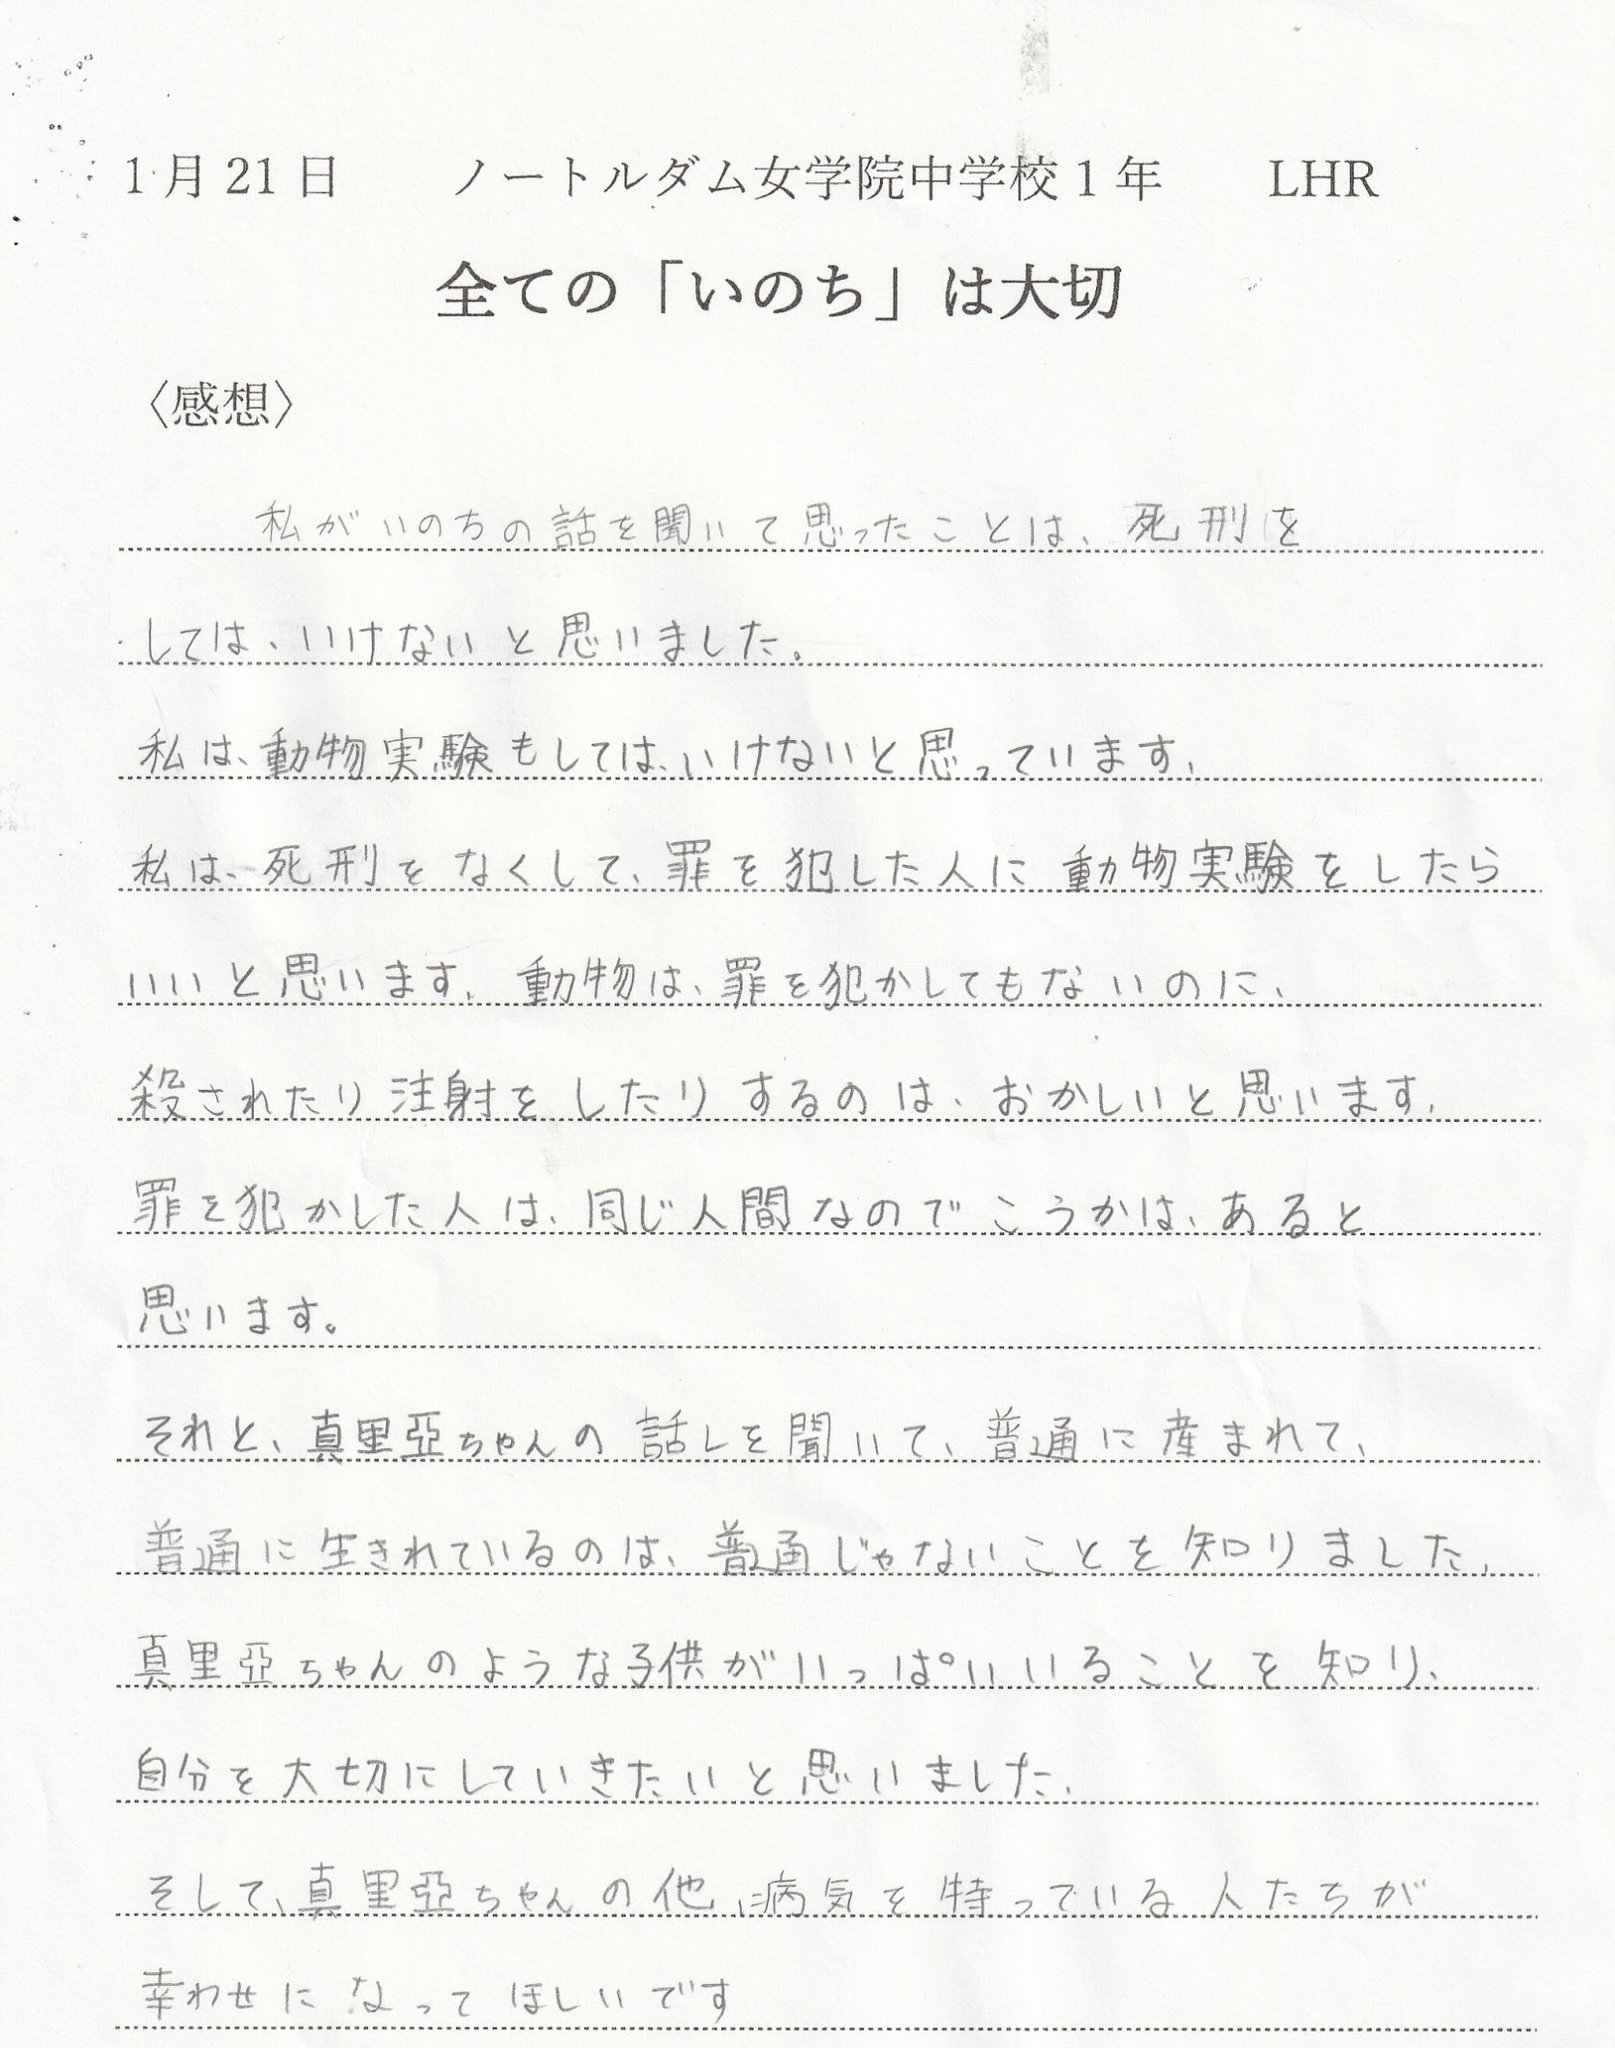 1月21日 ノートルダム女学院中学校1年 LHR
全ての「いのち」は大切
〈感想〉
私がいのちの話を聞いて思ったことは、死刑を
しては、いけないと思いました。
私は、動物実験もしては、いけないと思っています。
私は、死刑をなくして、罪を犯した人に動物実験をしたら
いいと思います。動物は、罪を犯かしてもないのに、
殺されたり注射をしたりするのは、おかしいと思います。
罪を犯かした人は、同じ人間なのでこうかは、あると
思います。
それと、真里亞ちゃんの話しを聞いて、普通に産まれて、
普通に生きれているのは、普通じゃないことを知りました。
真里亞ちゃんのような子供がいっぱいいることを知り、
自分を大切にしていきたいと思いました。
そして、真里亞ちゃんの他、病気を特っている人たちが
幸わせになってほしいです